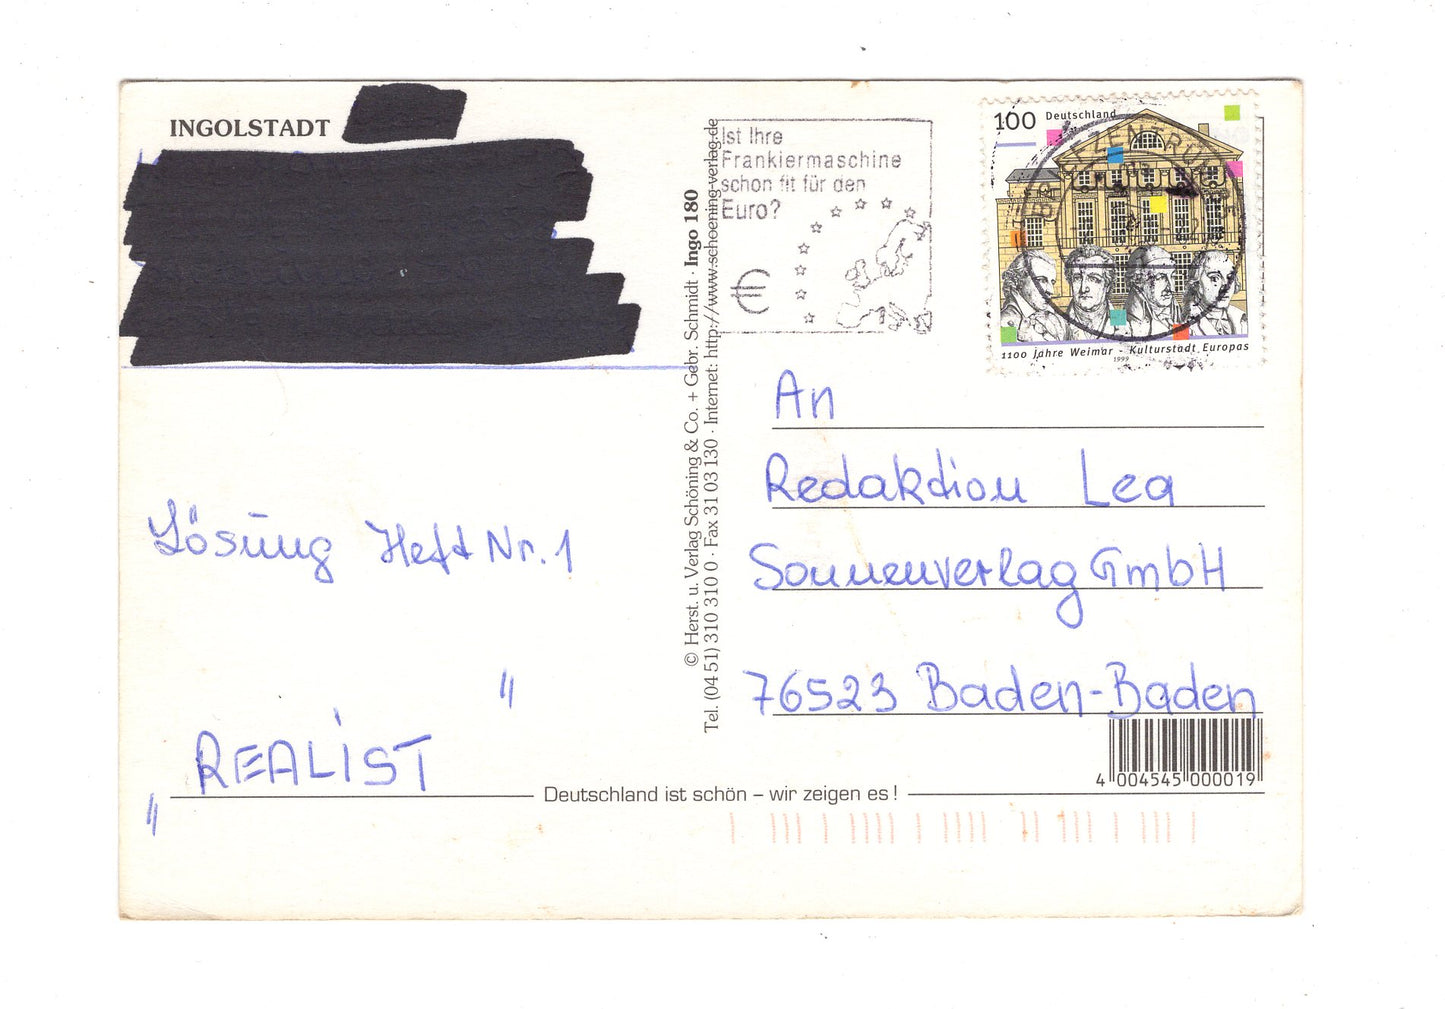 INGOLSTADT
Ist Ihre
Frankiermaschine
schon fit für den
Euro?
€
100 Deutschland
1100 Jahre Weimar - Kulturstadt Europas
1999
© Herst. u. Verlag Schöning & Co. + Gebr. Schmidt · Ingo 180
Tel. (04 51) 310 310 0 · Fax 31 03 130 · Internet: http://www.schoening-verlag.de
An
Redaktion Lea
Sonnenverlag GmbH
76523 Baden-Baden
Lösung Heft Nr. 1
"REALiST"
4 004545 000019
Deutschland ist schön – wir zeigen es !